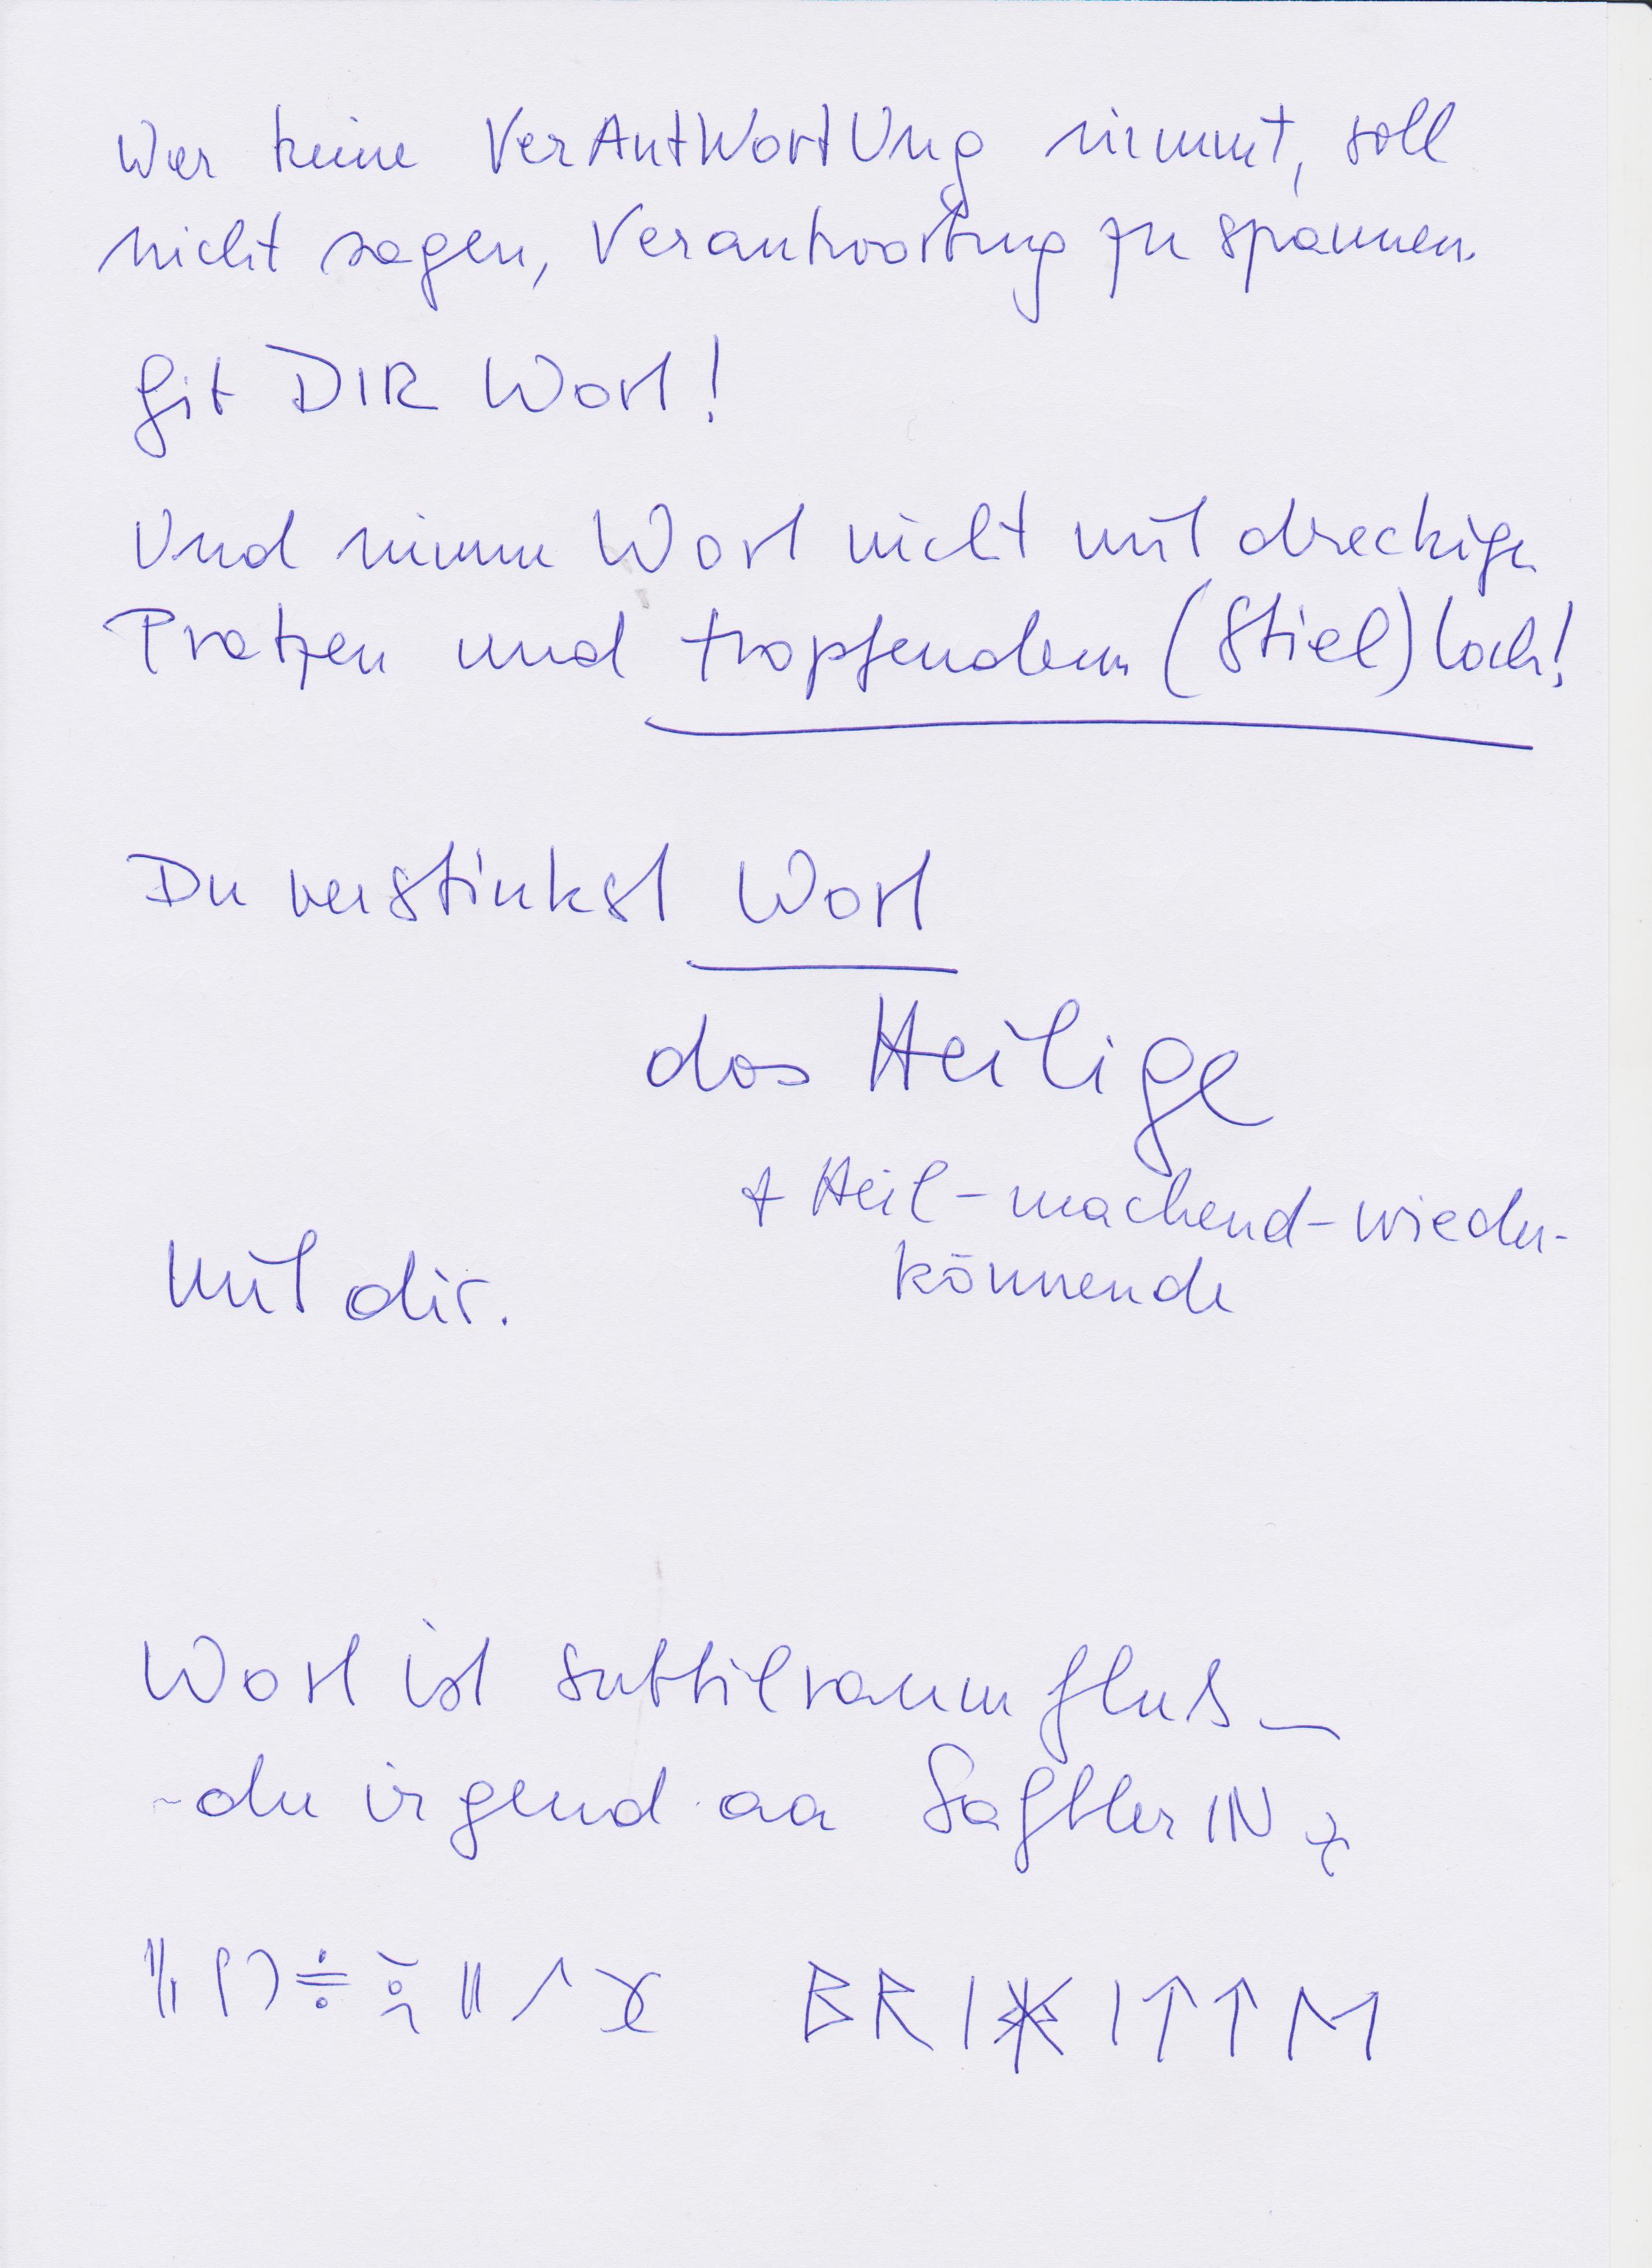 Wer keine VerAntWortUng nimmt, soll
nicht sagen, Verantwortung zu spannen.
git DIR Wort!
Und nimm Wort nicht mit dreckige
Pratzen und tropfendem (Stiel)loch!
Du verstinkst Wort
das Heilige
+ Heil-machend-wieder-
könnende
Mit dir.
Wort ist subtilraumfluß_
~du irgend aa
BRI